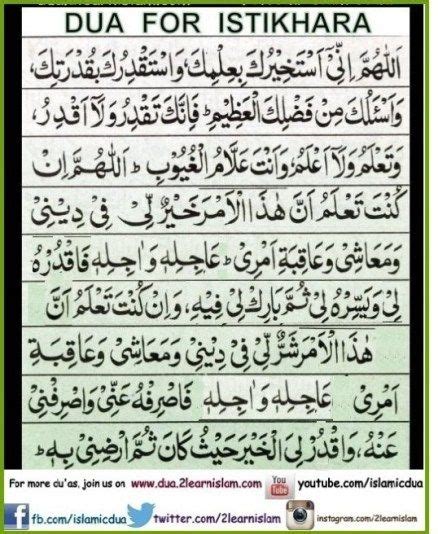 DUA FOR ISTIKHARA
اَللّٰهُمَّ اِنِّیْۤ اَسْتَخِيْرُكَ بِعِلْمِكَ، وَاَسْتَقْدِرُكَ بِقُدْرَتِكَ،
وَاَسْئَلُكَ مِنْ فَضْلِكَ الْعَظِيْمِ ؕ فَاِنَّكَ تَقْدِرُ وَلَاۤ اَقْدِرُ،
وَتَعْلَمُ وَلَاۤ اَعْلَمُ، وَاَنْتَ عَلَّامُ الْغُيُوْبِ ؕ اَللّٰهُمَّ اِنْ
كُنْتَ تَعْلَمُ اَنَّ هٰذَا الْاَمْرَ خَيْرٌ لِّیْ فِیْ دِيْنِیْ
وَمَعَاشِیْ وَعَاقِبَةِ اَمْرِیْ ؕ عَاجِلِهٖ وَاٰجِلِهٖ فَاقْدُرْهُ
لِیْ وَيَسِّرْهُ لِیْ ثُمَّ بَارِكْ لِیْ فِيْهِ، وَاِنْ كُنْتَ تَعْلَمُ اَنَّ
هٰذَا الْاَمْرَ شَرٌّ لِّیْ فِیْ دِيْنِیْ وَمَعَاشِیْ وَعَاقِبَةِ
اَمْرِیْ عَاجِلِهٖ وَاٰجِلِهٖ فَاصْرِفْهُ عَنِّیْ وَاصْرِفْنِیْ
عَنْهُ، وَاقْدُرْ لِیَ الْخَيْرَ حَيْثُ كَانَ ثُمَّ اَرْضِنِیْ بِهٖ ؕ
For more du'as, join us on www.dua.2learnislam.com You Tube youtube.com/islamicdua
f fb.com/islamicdua twitter.com/2learnislam instagram.com/2learnislam